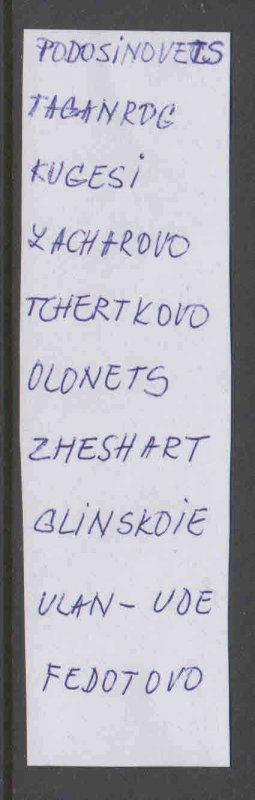 PODOSINOVETS
TAGANROG
KUGESI
ZACHAROVO
TCHERTKOVO
OLONETS
ZHESHART
GLINSKOIE
ULAN-UDE
FEDOTOVO